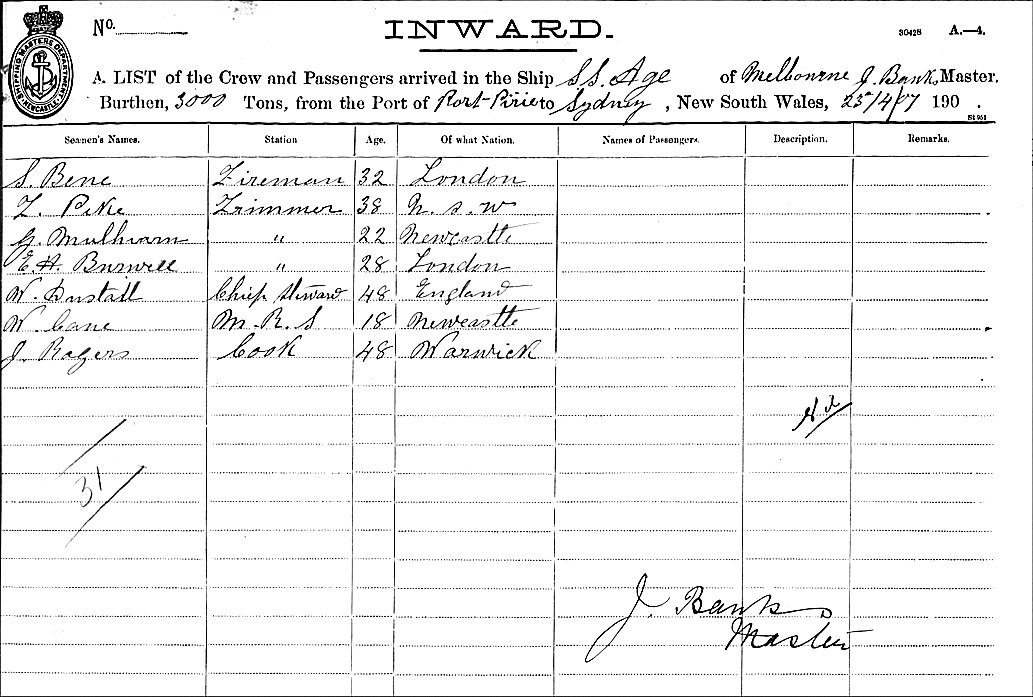 No. INWARD. 30428 A.—4.
A. LIST of the Crew and Passengers arrived in the Ship S.S. Age of Melbourne J. Banks Master.
Burthen, 3000 Tons, from the Port of Port Pirie to Sydney, New South Wales, 25/4/07 190 .
St 951
Seamen's Names. Station Age. Of what Nation. Names of Passengers. Description. Remarks.
S. Bene Fireman 32 London
Pike Trimmer 38 N. S. W
G. Mulhearn " 22 Newcastle
E. H. Burwell " 28 London
W. Dustall Chief Steward 48 England
W. Cane M. R. S 18 Newcastle
J. Rogers Cook 48 Warwick
31
J. Banks
Master
SHIPPING MASTERS DEPARTMENT
NEWCASTLE